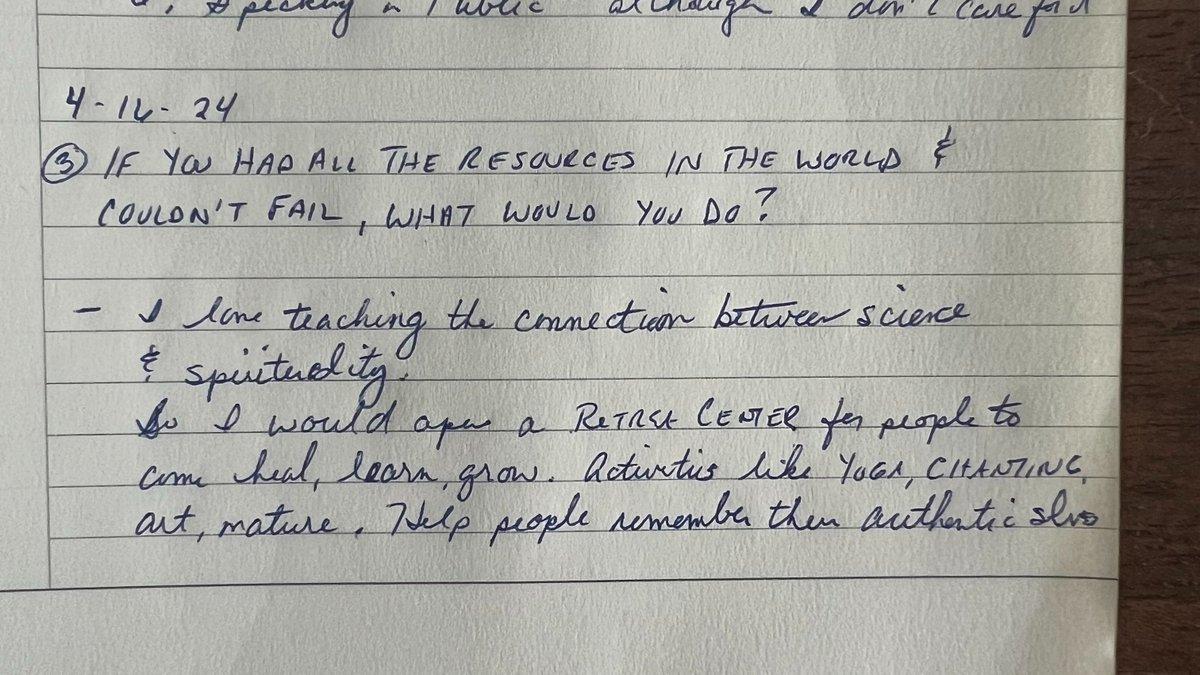 Speaking in Public although I don't care for it
4-16-24
③ IF YOU HAD ALL THE RESOURCES IN THE WORLD &
COULDN'T FAIL, WHAT WOULD YOU DO?
- I love teaching the connection between science
& spirituality.
So I would open a RETREAT CENTER for people to
come heal, learn, grow. Activities like YOGA, CHANTING,
art, nature. Help people remember their authentic slvs